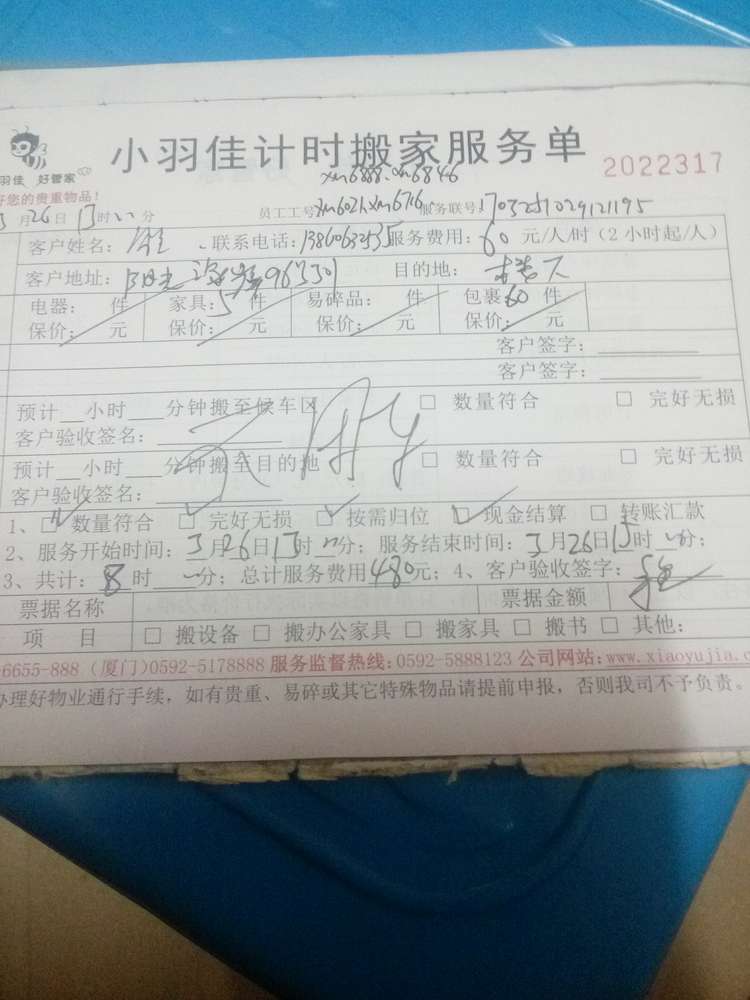 小羽佳计时搬家服务单
2022317
羽佳 好管家
好您的贵重物品!
xm6888.xm6846
3月26日13时 分 员工工号 xm6021.xm6716 服务联号:1703251029121195
客户姓名: 联系电话: 服务费用:60元/人/时(2小时起/人)
客户地址:阳光 963301 目的地:
电器: 件 家具:5件 易碎品: 件 包裹60件
保价: 元 保价: 元 保价: 元 保价: 元
客户签字:
客户签字:
预计__小时___分钟搬至候车区 □ 数量符合 □ 完好无损
客户验收签名:
预计__小时___分钟搬至目的地 □ 数量符合 □ 完好无损
客户验收签名:
1、☑ 数量符合 ☑ 完好无损 ☑ 按需归位 ☑ 现金结算 □ 转账汇款
2、服务开始时间:3月26日13时 分; 服务结束时间:3月26日15时 分;
3、共计:8时 分; 总计服务费用480元; 4、客户验收签字:
票据名称 票据金额
项 目 □ 搬设备 □ 搬办公家具 □ 搬家具 □ 搬书 □ 其他:
6655-888 (厦门)0592-5178888 服务监督热线:0592-5888123 公司网站:www.xiaoyujia.c
办理好物业通行手续,如有贵重、易碎或其它特殊物品请提前申报,否则我司不予负责。